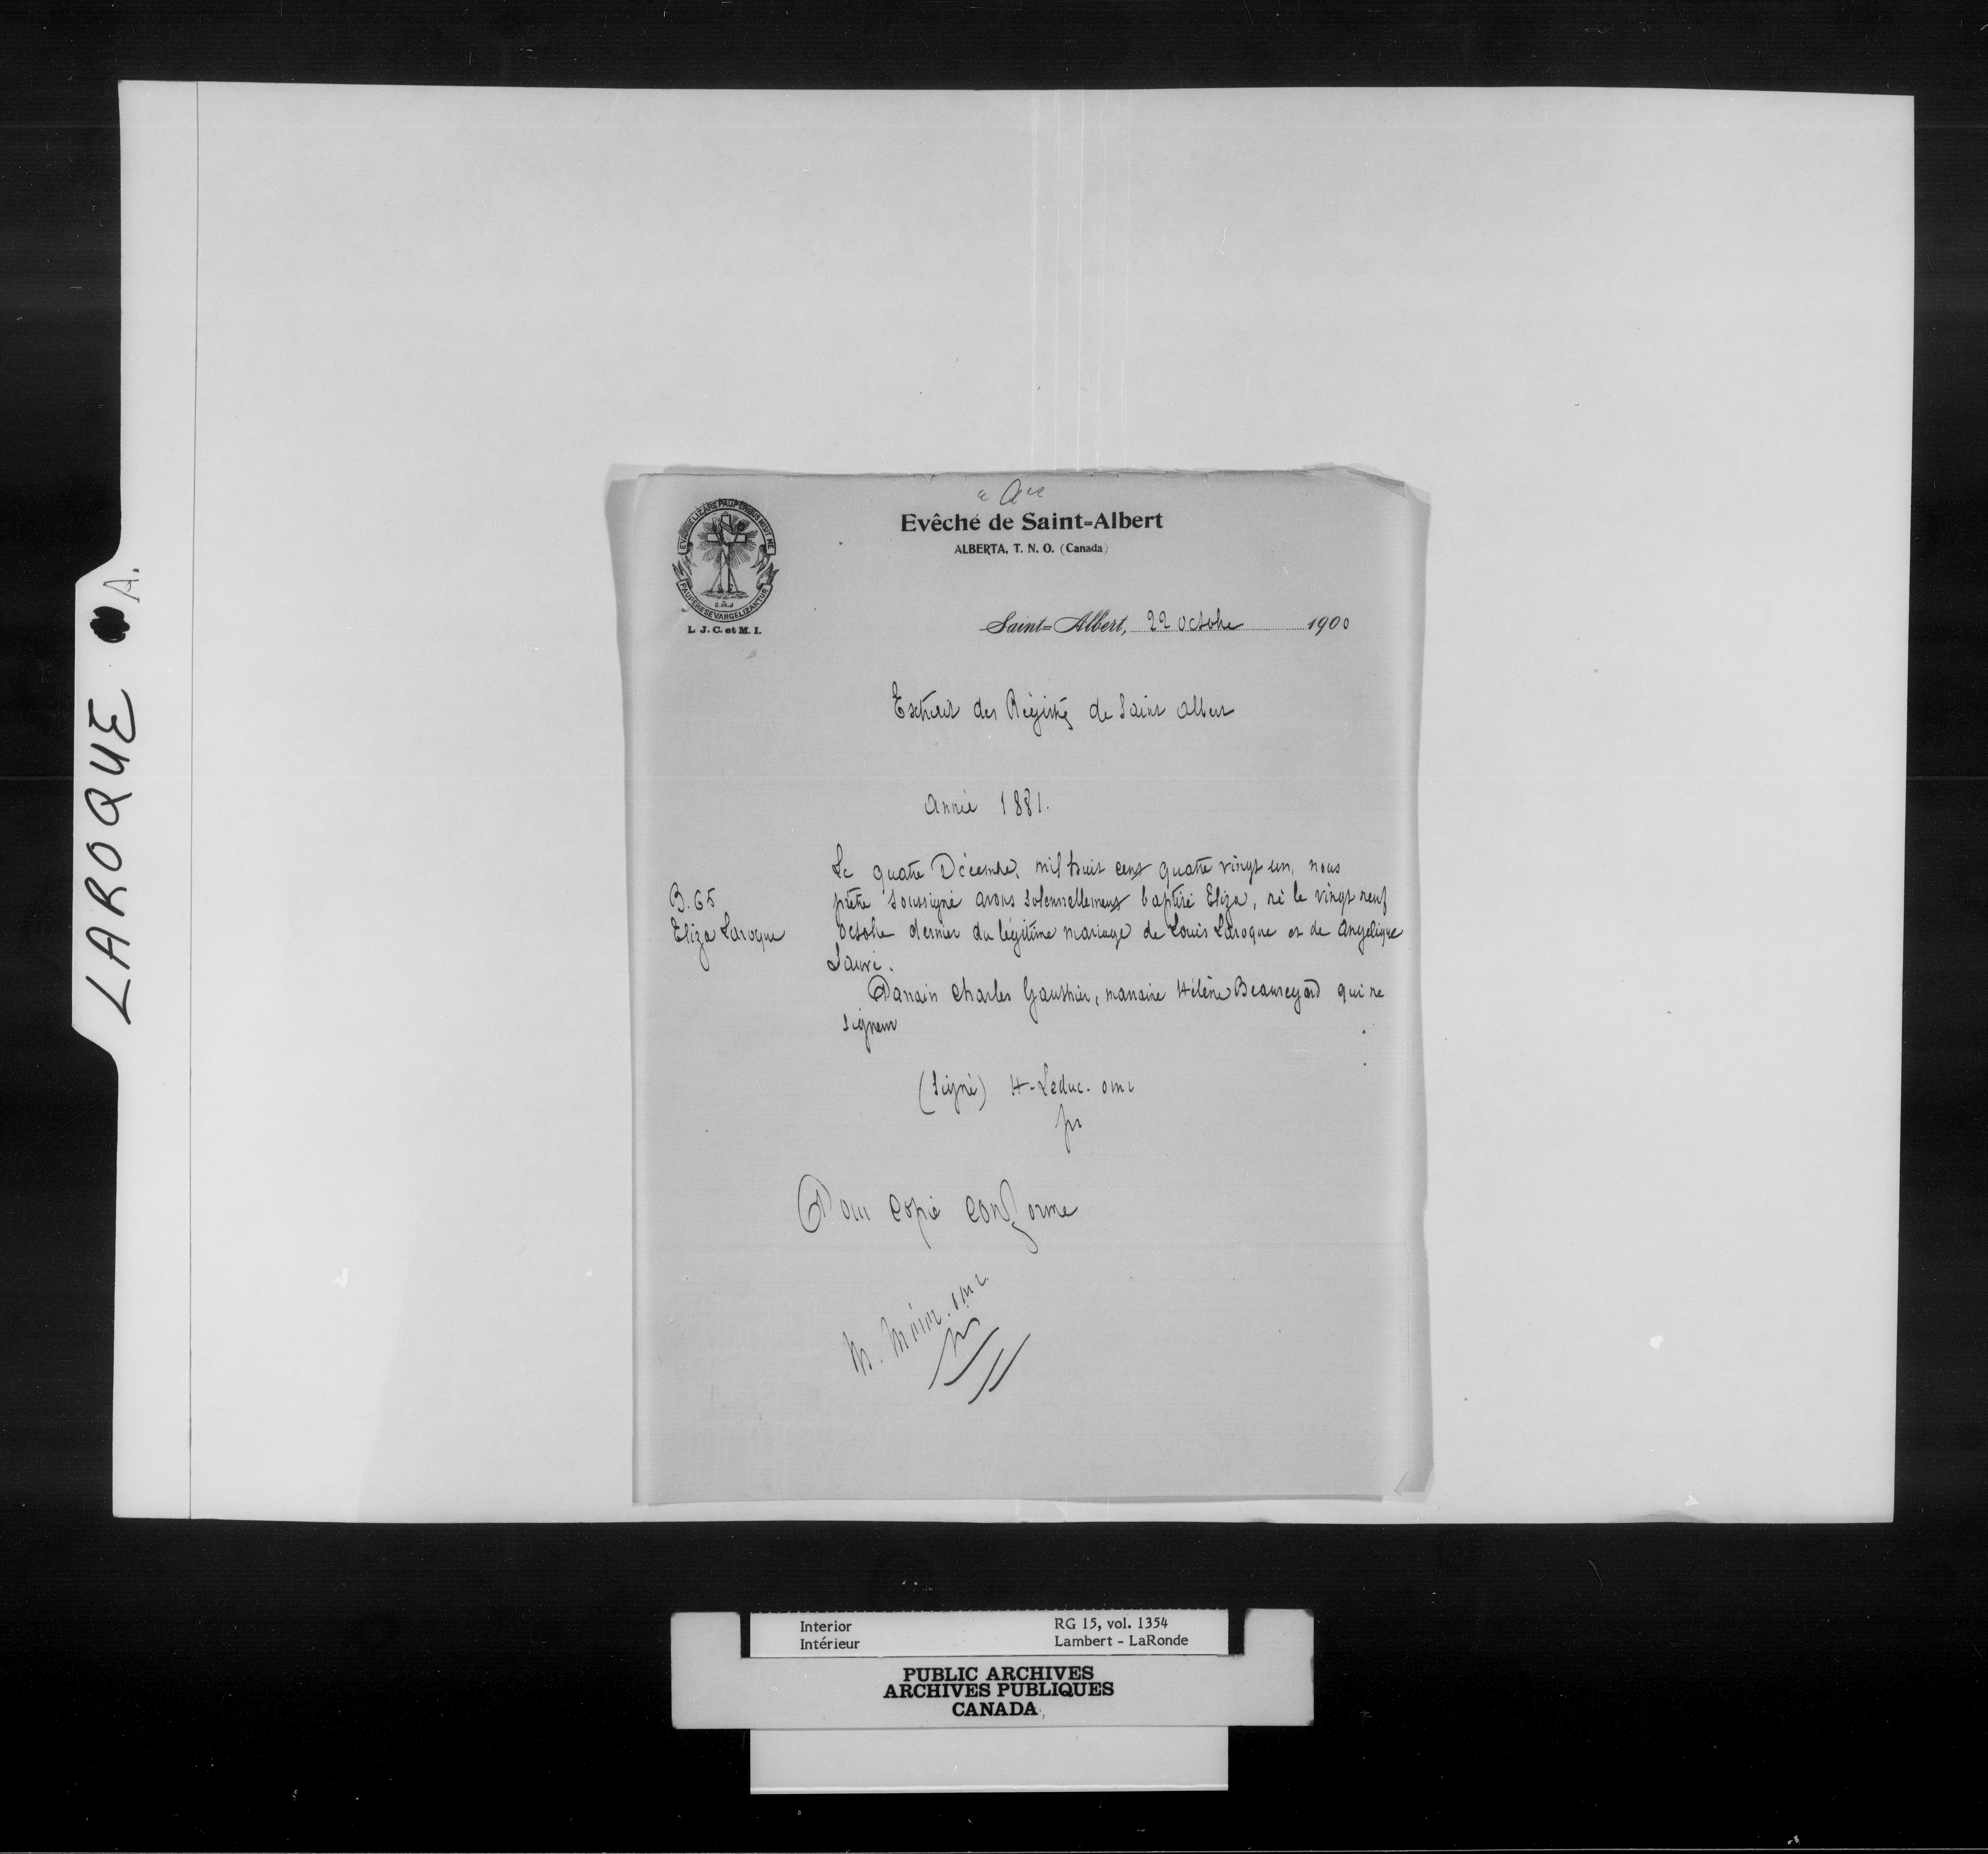 LAROQUE A.
"A"
EVANGELIZARE PAUPERIBUS MISIT ME
PAUPERES EVANGELIZANTUR
L. J. C. et M. I.
Evêché de Saint-Albert
ALBERTA, T. N. O. (Canada)
Saint-Albert, 22 octobre 1900
Extrait des Régistres de Saint Albert
Année 1881.
B. 65
Eliza Laroque
Le quatre Décembre, mil huit cent quatre vingt un, nous
prêtre soussigné avons solennellement baptisé Eliza, né le vingt neuf
octobre dernier du légitime mariage de Louis Laroque et de Angelique
Sauvé.
Parrain Charles Gauthier, marraine Hélène Beauregard qui ne
signent
(signé) H. Leduc. omi
ptr
Pour copie conforme
M. omi
ptr
Interior
Intérieur
RG 15, vol. 1354
Lambert - LaRonde
PUBLIC ARCHIVES
ARCHIVES PUBLIQUES
CANADA